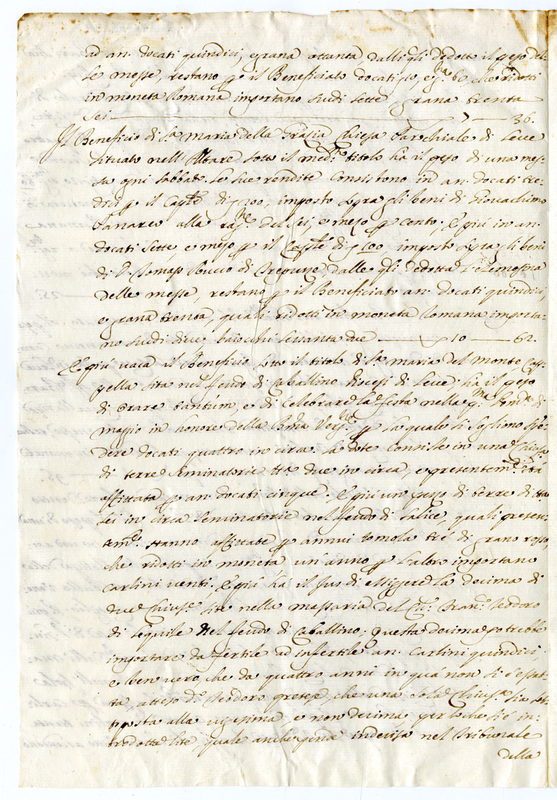 ad an. docati quindici, e grana ottanta dalli q.li dedotto il peso del
le messe, restano p il Beneficiato docati 10, e g.a 60 che ridotti
in moneta Romana importano scudi sette e grana trenta
sei — 7 — 36.
Il Beneficio di S.ta Maria della Grazia Chiesa Parochiale di Lecce
situato nell'Altare sotto il med.o titolo ha il peso di una mes
sa ogni sabbato. Le sue rendite consistono in an. docati tre
dici p il Cap.le di 200, imposto sopra gli beni di Gioacchino
Panareo alla rag.e del sei, e mezo p cento. E più in an.
docati sette, e mezo p il Cap.le di 100 imposto sopra li beni
di D. Tomaso Puccio di Trepuzze, dalle q.li dedotta l'elemosina
delle messe restano p il Beneficiato an. docati quindici,
e grana trenta, quali ridotti in moneta Romana importa
no scudi dieci baiocchi sessanta due — 10 — 62.
E più vaca il Beneficio sotto il titolo di S.ta Maria del Monte Cap
pella sita nel feudo di Caballino Diocesi di Lecce ha il peso
di orare tantùm, e di celebrare la festa nella p.ma Dom.ca di
maggio in honore della Beata Verg.e p la quale si sogliono spen
dere docati quattro in circa. La dote consiste in una Chiusa
di terre seminatorie tt.a due in circa, e presentem.te sta
affittata p an. docati cinque. E più un pezzo di terre di tt.a
sei in circa seminatorie nel feudo di Salice, quali presen
tem.te stanno affittate p annui tomola tre di grano rosso,
che ridotti in moneta un'anno p l'altro importano
carlini venti. E più ha il jus di esiggere la decima di
due chiuse site nella massaria del Ch. Fran.co Teodoro
di Lequile nel feudo di Caballino, questa decima potrebbe
importare da fertile ad infertile an. carlini quindici,
e ben vero che da quattro anni in quà non si è esatta
ta, atteso d. Teodoro pretese, che una sola Chiusa sia sot
toposta alla vigesima e non decima, per lo che si è in
tredotta lite, quale anche pena indecisa nel Tribunale
della